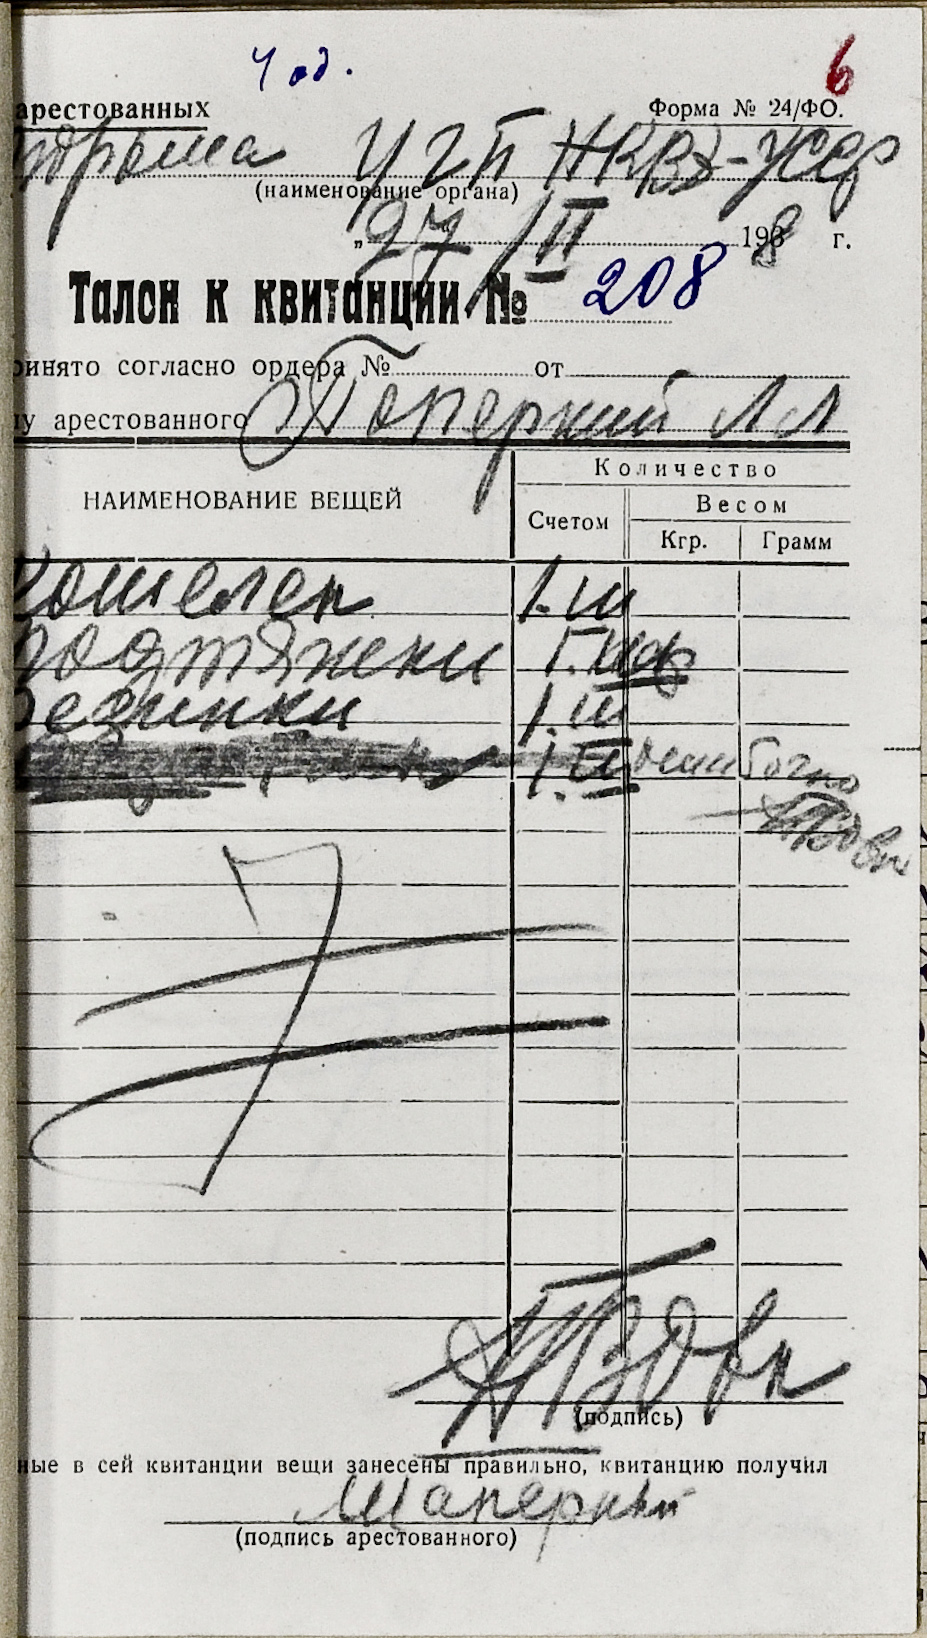 4 од.
6
арестованных Форма № 24/ФО.
УГБ НКВД-УССР
(наименование органа)
„27/II 1938 г.
Талон к квитанции № 208
ринято согласно ордера № от
у арестованного Л Л
НАИМЕНОВАНИЕ ВЕЩЕЙ
Количество
Счетом
Весом
Кгр. Грамм
Кошелек 1.ш
подтяжки 1.пар
резинки 1.ш
1.ш ошибочно
(подпись)
ные в сей квитанции вещи занесены правильно, квитанцию получил
(подпись арестованного)